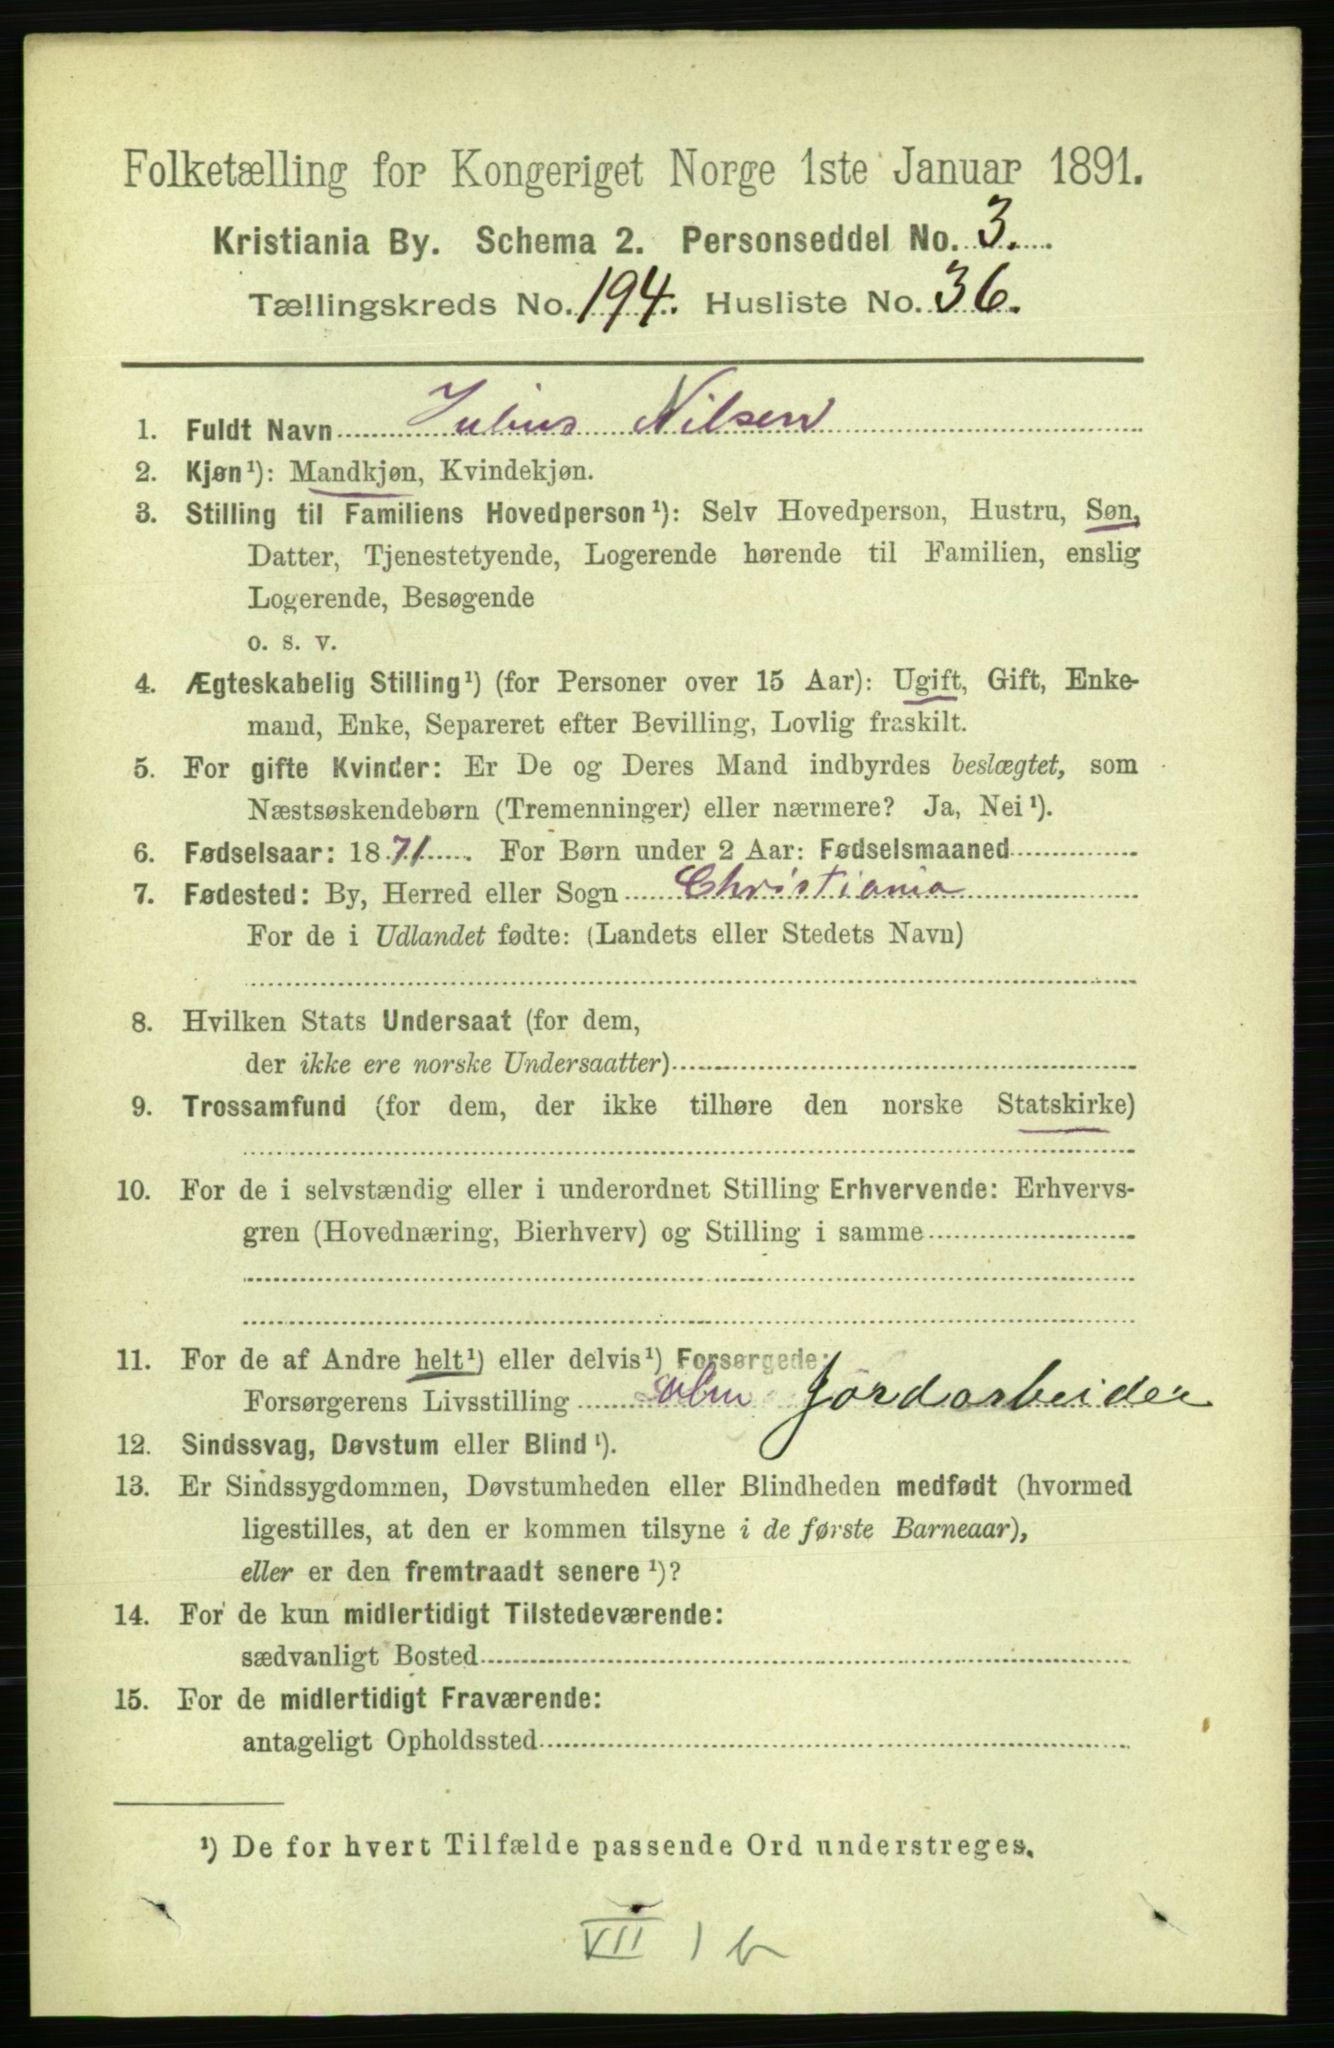 Folketælling for Kongeriget Norge 1ste Januar 1891.
Kristiania By. Schema 2. Personseddel No. 3.
Tællingskreds No. 194. Husliste No. 36.
1. Fuldt Navn Julius Nilsen
2. Kjøn¹): Mandkjøn, Kvindekjøn.
3. Stilling til Familiens Hovedperson¹): Selv Hovedperson, Hustru, Søn,
Datter, Tjenestetyende, Logerende hørende til Familien, enslig
Logerende, Besøgende
o. s. v.
4. Ægteskabelig Stilling¹) (for Personer over 15 Aar): Ugift, Gift, Enke-
mand, Enke, Separeret efter Bevilling, Lovlig fraskilt.
5. For gifte Kvinder: Er De og Deres Mand indbyrdes beslægtet, som
Næstsøskendebørn (Tremenninger) eller nærmere? Ja, Nei¹).
6. Fødselsaar: 1871. For Børn under 2 Aar: Fødselsmaaned
7. Fødested: By, Herred eller Sogn Christiania
For de i Udlandet fødte: (Landets eller Stedets Navn)
8. Hvilken Stats Undersaat (for dem,
der ikke ere norske Undersaatter)
9. Trossamfund (for dem, der ikke tilhøre den norske Statskirke)
10. For de i selvstændig eller i underordnet Stilling Erhvervende: Erhvervs-
gren (Hovednæring, Bierhverv) og Stilling i samme
11. For de af Andre helt¹) eller delvis¹) Forsørgede:
Forsørgerens Livsstilling Jordarbeider
12. Sindssvag, Døvstum eller Blind¹).
13. Er Sindssygdommen, Døvstumheden eller Blindheden medfødt (hvormed
ligestilles, at den er kommen tilsyne i de første Barneaar),
eller er den fremtraadt senere¹)?
14. For de kun midlertidigt Tilstedeværende:
sædvanligt Bosted
15. For de midlertidigt Fraværende:
antageligt Opholdssted
¹) De for hvert Tilfælde passende Ord understreges.
VII 1 b